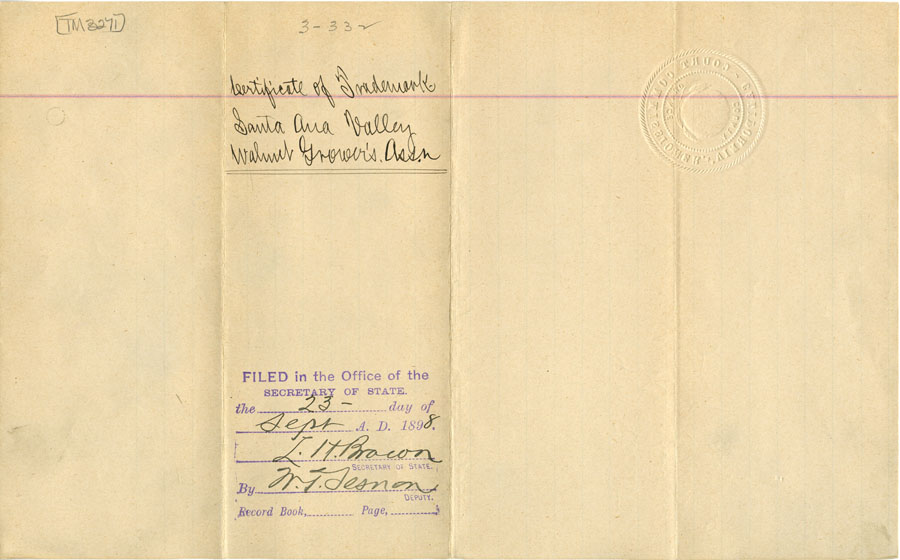 [TM3271]
3-332
Certificate of Trademark
Santa Ana Valley
Walnut Grower's. Assn
FILED in the Office of the
SECRETARY OF STATE.
the 23- day of
Sept A. D. 1898.
L. H. Brown
SECRETARY OF STATE.
By W. T. Sesnon
DEPUTY.
Record Book, Page,